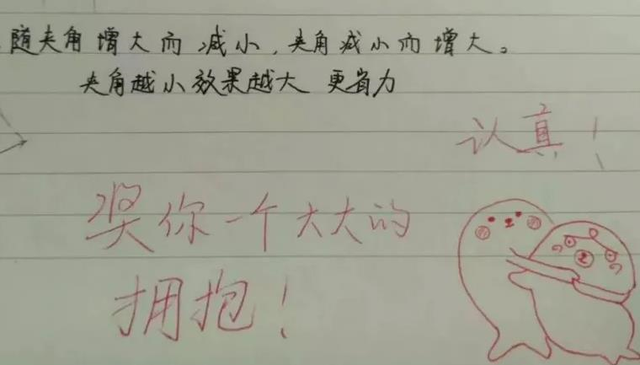 随夹角增大而减小，夹角减小而增大。
夹角越小效果越大 更省力
认真！
奖你一个大大的
拥抱！